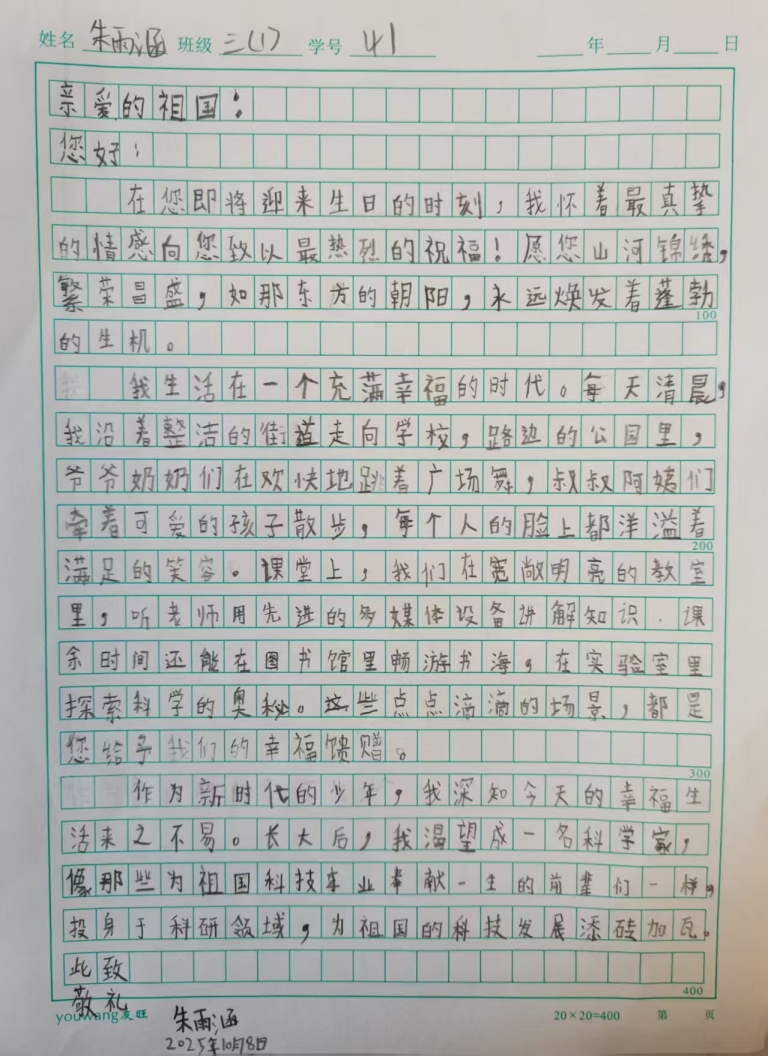 姓名 朱雨涵 班级 三(1) 学号 41 年 月 日
亲爱的祖国：
您好：
在您即将迎来生日的时刻，我怀着最真挚
的情感向您致以最热烈的祝福！愿您山河锦绣，
繁荣昌盛，如那东方的朝阳，永远焕发着蓬勃
100
的生机。
我生活在一个充满幸福的时代。每天清晨，
我沿着整洁的街道走向学校，路边的公园里，
爷爷奶奶们在欢快地跳着广场舞，叔叔阿姨们
牵着可爱的孩子散步，每个人的脸上都洋溢着
200
满足的笑容。课堂上，我们在宽敞明亮的教室
里，听老师用先进的多媒体设备讲解知识．课
余时间还能在图书馆里畅游书海，在实验室里
探索科学的奥秘。这些点点滴滴的场景，都是
您给予我们的幸福馈赠。
300
作为新时代的少年，我深知今天的幸福生
活来之不易。长大后，我渴望成一名科学家，
像那些为祖国科技事业奉献一生的前辈们一样，
投身于科研领域，为祖国的科技发展添砖加瓦。
此致
400
敬礼
youwang友旺 20×20=400 第 页
朱雨涵
2025年10月8日